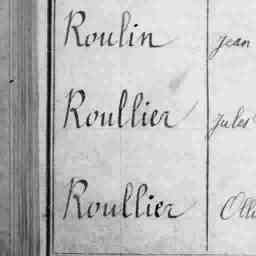 Roulin Jean
Roullier Jules
Roullier